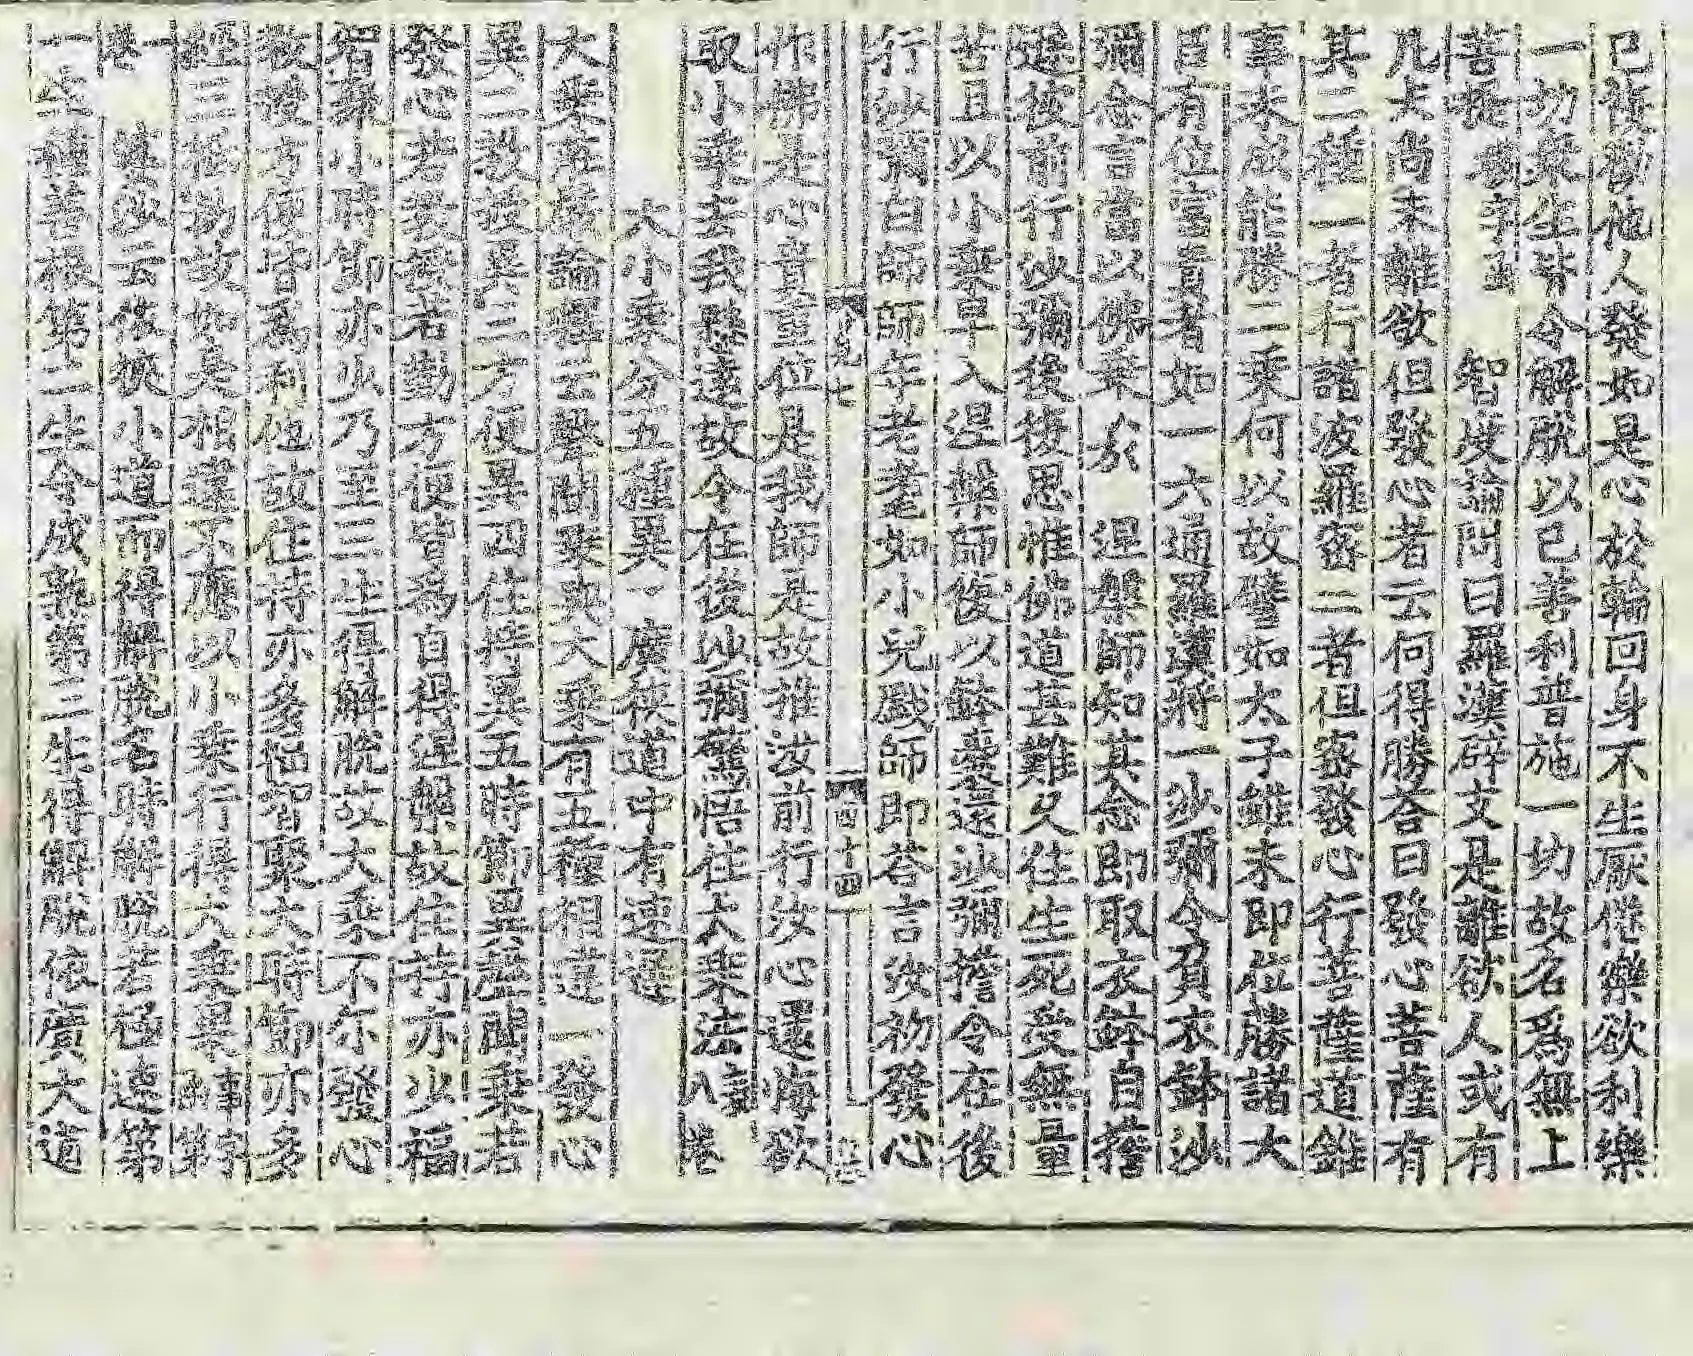 已復勸他人發如是心於輪回身不生厭倦樂欲利樂
一切眾生皆令解脫以己善利普施一切故名爲無上
菩提 智度論問曰羅漢辟支是離欲人或有
凡夫尚未離欲但發心者云何得勝答曰發心菩薩有
其二種一者行諸波羅密二者但密發心行菩薩道雖
事未成能勝二乘何以故譬如太子雖未即位勝諸大
臣有位富貴者如一六通羅漢將一沙彌令負衣鉢沙
彌念言當以佛乘入涅槃師知其念即取衣鉢自擔
遂按前行沙彌後復思惟佛道甚難久住生死受無量
苦且以小乘早入涅槃師復以鉢囊還沙彌擔令在後
行沙彌白師師年老耄如小兒戲師即答言汝初發心
作佛是心貴重位是我師是故推汝前行汝心還悔欲
取小乘去我懸遠故令在後沙彌驚悟住大乘法 卷
大小乘分五種異 廣俠道中有連還
大乘莊嚴論 云聲聞乘與大乘有五種相違一發心
異二教授異三方便異四住持異五時節異聲聞乘若
發心若教授若勤方便皆爲自得涅槃故住持亦少福
智聚小時節亦少乃至三生得解脫故大乘不尔發心
教授方便皆爲利他故住持亦多福智聚大時節亦多
經三祇劫故如是相違不應以小乘行得大乘果 第
一卷 婆沙云極疾 小道而得解脫名時解脫若極速第
一生種善根第二生令成熟第三生得解脫依廣大道